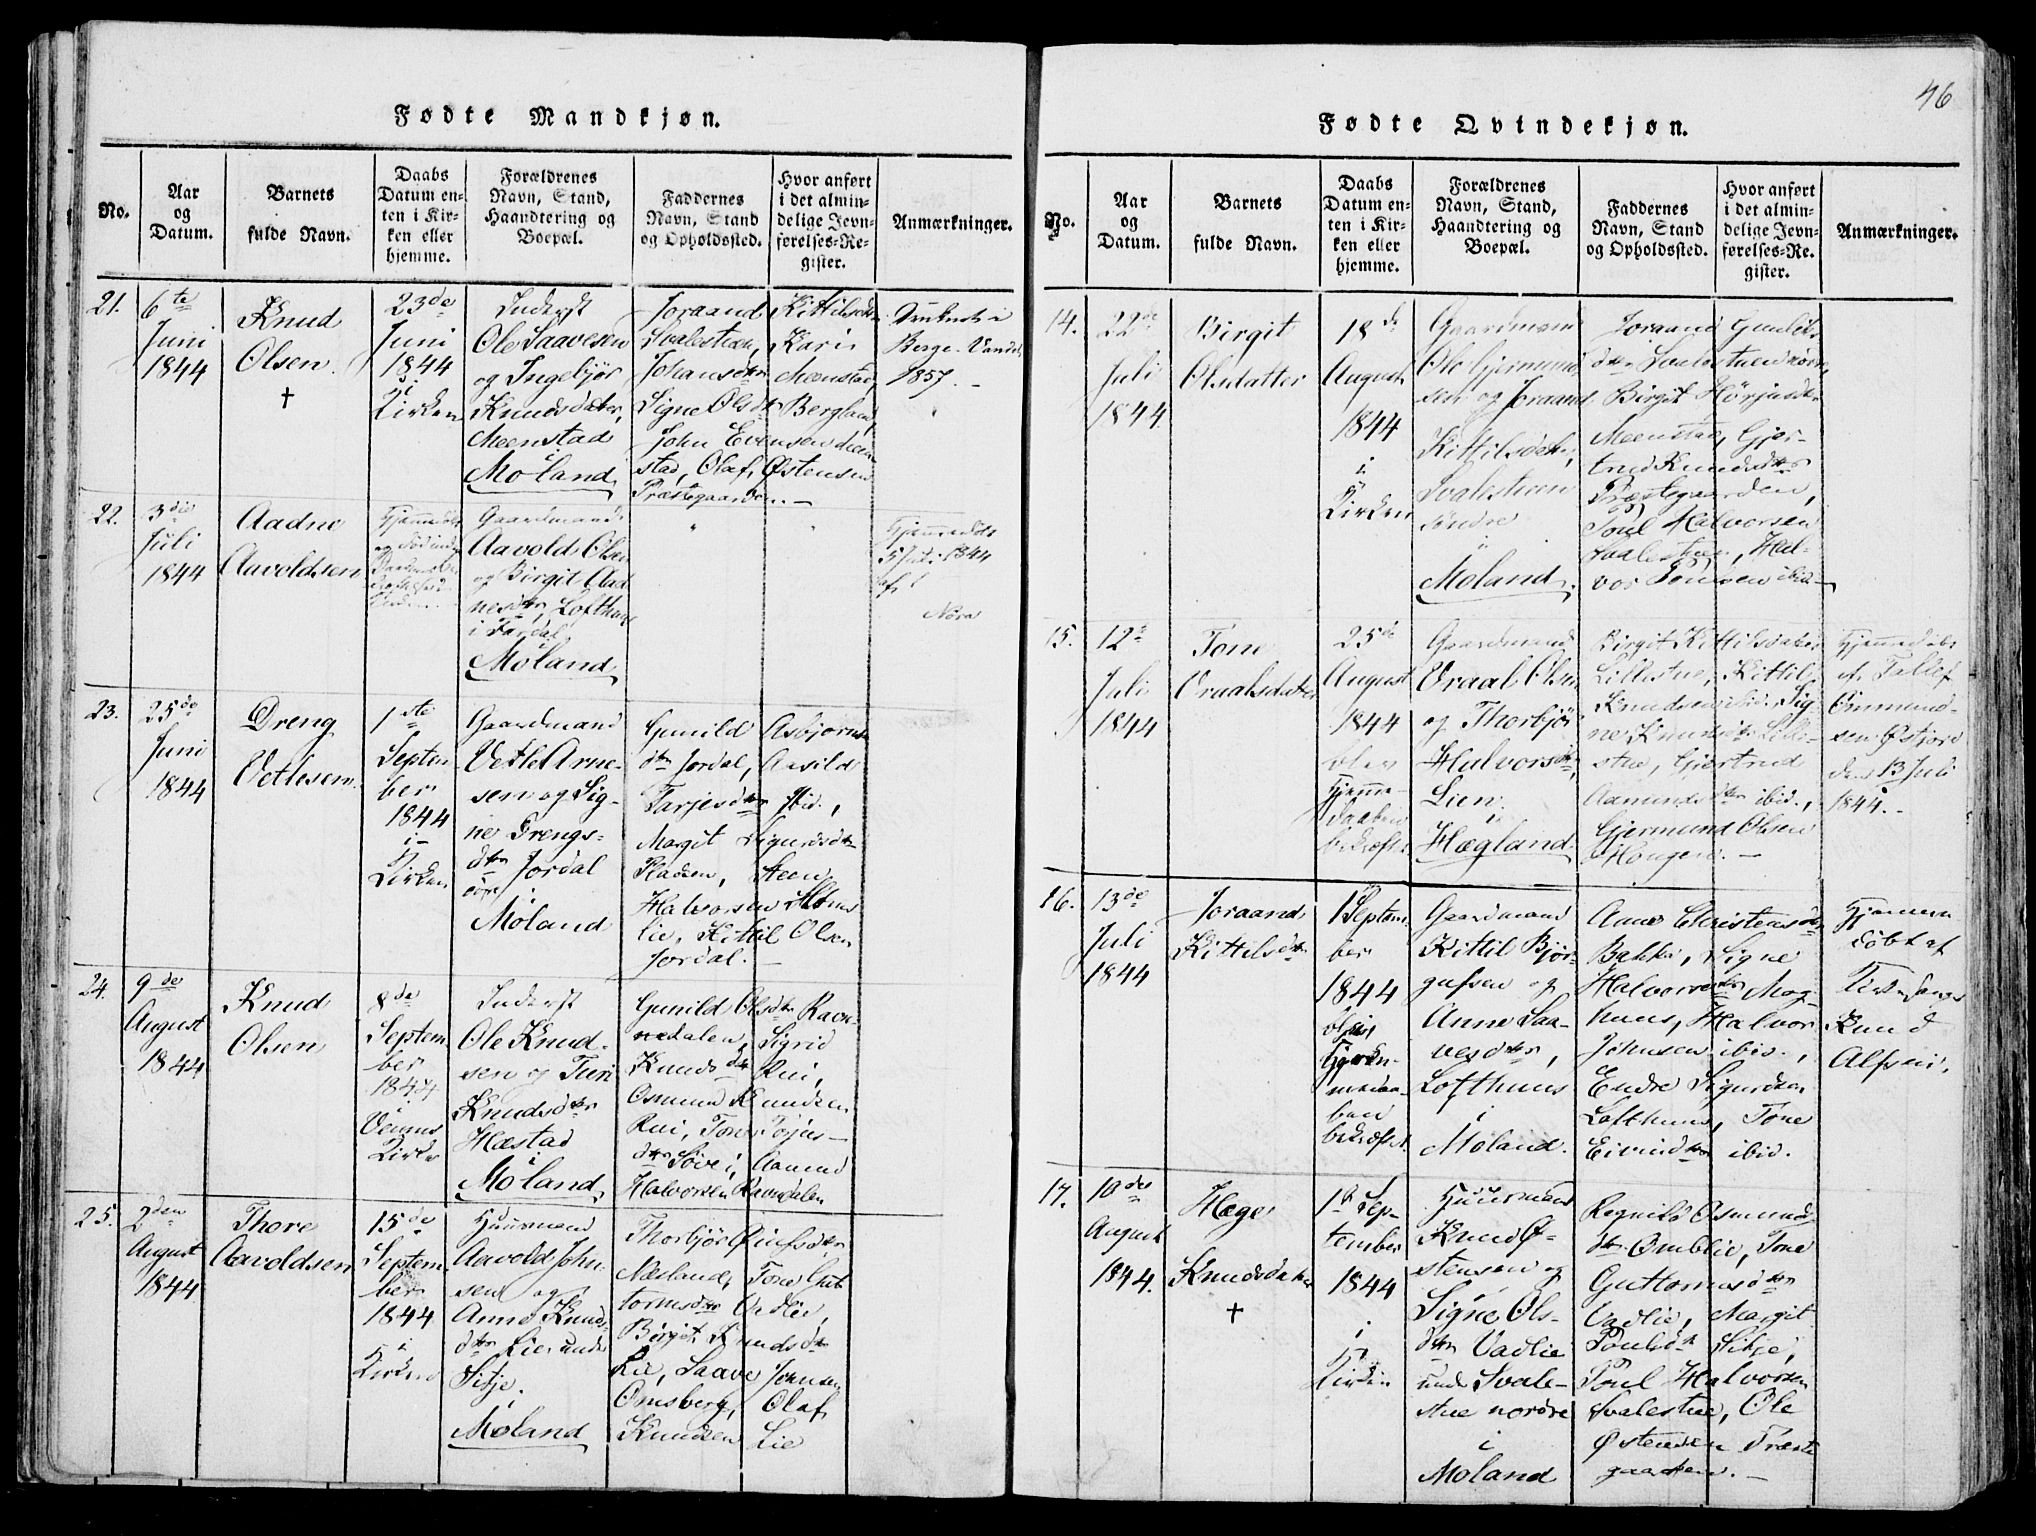 46
Fødte Mandkjøn.
No.
Aar
og
Datum.
Barnets
fulde Navn.
Daabs
Datum en-
ten i Kir-
ken eller
hjemme.
Forældrenes
Navn, Stand,
Haandtering og
Boepæl.
Faddernes
Navn, Stand
og Opholdssted.
Hvor anført
i det almin-
delige Jevn-
førelses-Re-
gister.
Anmærkninger.
21.
6te
Juni
1844
Knud
Olsen.
†
23de
Juni
1844
i
Kirken
Inderst
Ole Saavesen
og Ingebjør
Knudsdatter,
Meenstad
i
Moland.
Joraand Kittilsdtr
Svalestuen, Kari
Johansdtr Meenstad,
Signe Olsdtr Bergland,
John Evensen Meen-
stad, Olaf Østensen
Præstegaarden.
Druknet i
Berge Vandet
1857.
22.
3die
Juli
1844
Aadne
Aavoldsen
Gaardmand
Aavold Olsen
og Birgit Aad-
nesdtr, Lofthuus
i
Moland
Hjemmedøbt
5 Juli 1844
af
23.
25de
Juni
1844
Dreng
Vetlesen.
1ste
Septem-
ber
1844
i
Kirken
Gaardmand
Vetle Arne-
sen og Sig-
ne Drengs-
dtr Jordal
i
Moland
Gunild Asbjørns-
dtr Jordal, Aasild
Tarjesdtr ibid.,
Margit Sigurdsdtr
Pladsen, Steen
Halvorsen
lie, Kittil Olsen
Jordal.
24.
9de
August
1844
Knud
Olsen
8de
Septem-
ber
1844
i
Veums
Kirke
Inderst
Ole Knud-
sen og Turi
Knudsdtr
Hæstad
i
Moland.
Gunild Olsdtr Ravn-
nedalen, Sigrid
Knudsdtr Rui,
Osmund Knudsen
Rui, Tone Torjus-
dtr Sove, Aamund
Halvorsen Ravndalen
25.
2den
August
1844
Thore
Aavoldsen
15de
Septem-
ber
1844
i
Kirken
Huusmand
Aavold John-
sen og
Anne Knuds-
dtr Lie under
Sitje.
Moland
Thorbjør Leifsdtr
Næsland, Tone Gut-
tormsdtr Vadlie,
Birgit Knudsdtr
Lie, Saave Johnsen
Omsberg, Olaf
Knudsen Lie
Fødte Qvindekjøn.
No.
Aar
og
Datum.
Barnets
fulde Navn.
Daabs
Datum en-
ten i Kir-
ken eller
hjemme.
Forældrenes
Navn, Stand,
Haandtering og
Boepæl.
Faddernes
Navn, Stand
og Opholdssted.
Hvor anført
i det almin-
delige Jevn-
førelses-Re-
gister.
Anmærkninger.
14.
22de
Juli
1844
Birgit
Olsdatter
18de
August
1844
i
Kirken
Gaardmand
Ole Gjermund-
sen og Joraand
Kittilsdatter,
Svalestuen
søndre
i
Moland.
Joraand Gunleiks-
dtr Svalestuen nørre,
Birgit Herjusdtr
Meenstad, Gjer-
trud Knudsdtr
Præstegaarden,
Poul Halvorsen
Svalestuen, Hal-
vor Poulsen ibid.
15.
12te
Juli
1844
Tone
Vraalsdatter
25de
August
1844
blev
Hjemme-
daaben
bekræftet
Gaardmand
Vraal Olsen
og Thorbjør
Halvorsdtr,
Lien
i
Hægland.
Birgit Kittilsdatter
Lillestue, Kittil
Knudsen ibid. Sig-
ne Knudsdtr Lille-
stue, Gjertrud
Aamundsdtr ibid.,
Gjermund Olsen
Hougen.
Hjemmedøbt
af Tallef
Ommund-
sen
den 13 Juli
1844.
16.
13de
Juli
1844
Joraand
Kittilsdtr
1 Septem-
ber
1844
blev
bekræftet.
Gaardmand
Kittil Bjør-
gufsen og
Anne Saa-
vesdtr,
Lofthuus
i
Moland.
Anne Christensdtr
Bakke, Signe
Halvorsdtr Mog-
huus, Halvor
Johnsen ibid.,
Endre Sigurdsen
Lofthuus, Tone
Eivindsdtr ibid.
Hjemme
døbt af
Kirkesanger
Knud
Alfsen.
17.
10de
August
1844.
Hæge
Knudsdatter
†
15 Sep-
tember
1844
i
Kirken
Huusmand
Knud Ø-
stensen og
Signe Ols-
dtr Vadlie
under Svale-
stue nordre
i
Moland
Ragnild Osmunds-
dtr Omblie, Tone
Guttormsdtr
Vadlie, Margit
Poulsdtr Sitje,
Poul Halvorsen
Svalestue, Ole
Østensen Præste-
gaarden.